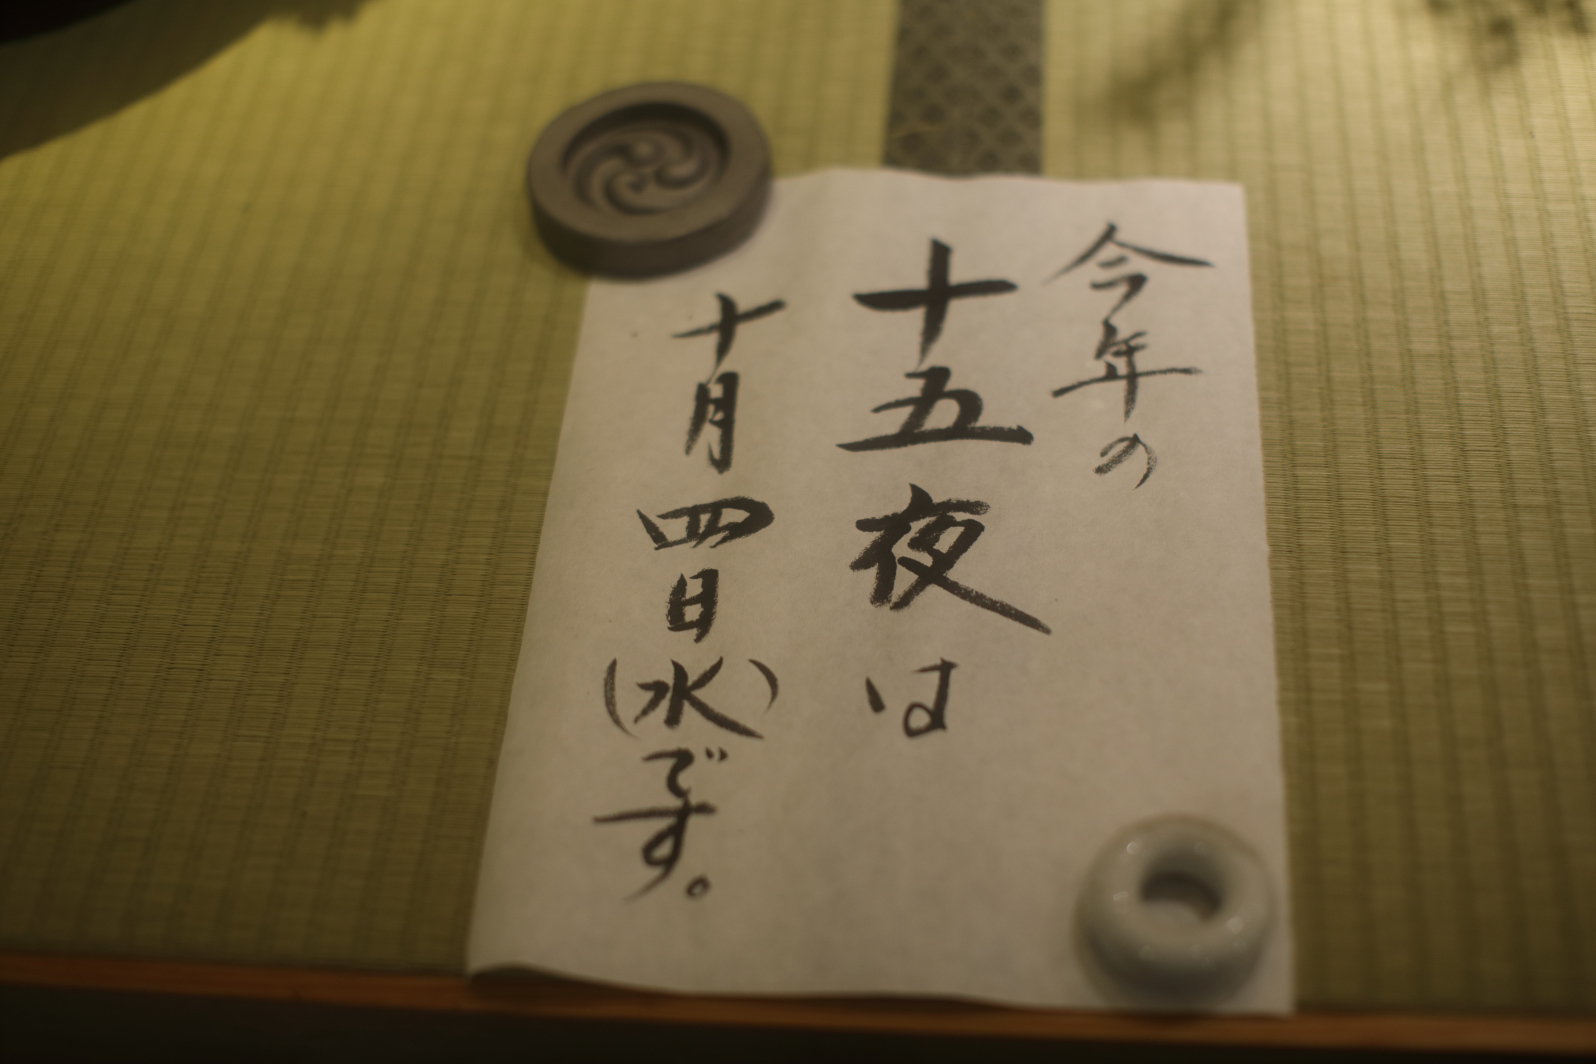 今年の
十五夜は
十月四日(水)です。